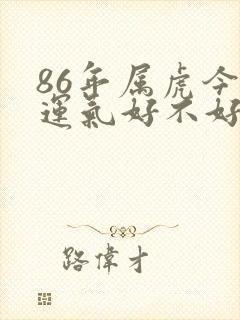 86年属虎今
運氣好不好
路偉才